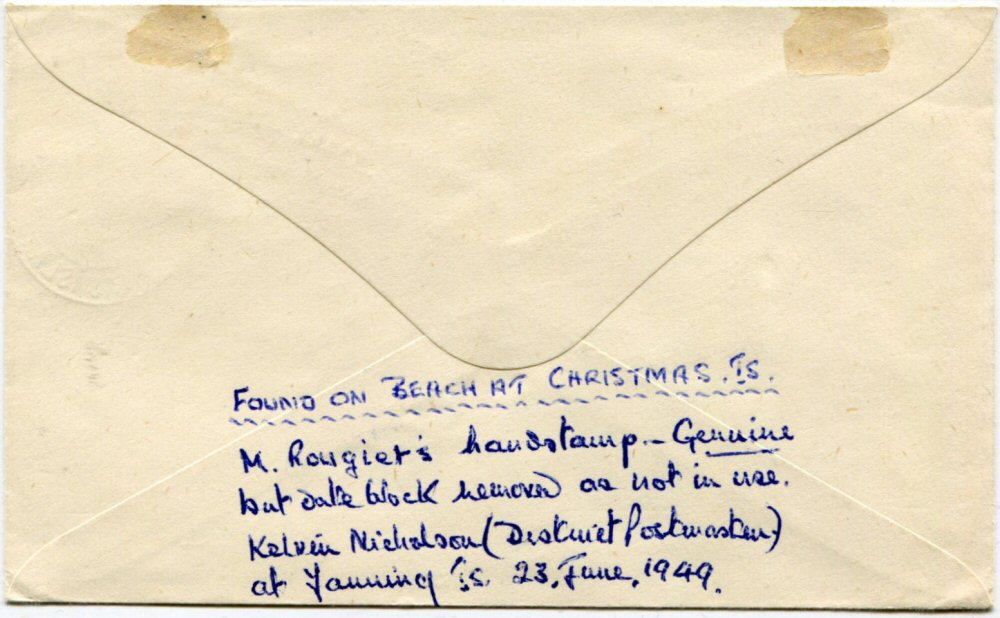 FOUND ON BEACH AT CHRISTMAS. IS.
M. Rougier's handstamp. – Genuine
but date block removed as not in use.
Kelvin Nicholson (District Postmaster)
at Fanning Is 23, June, 1949.